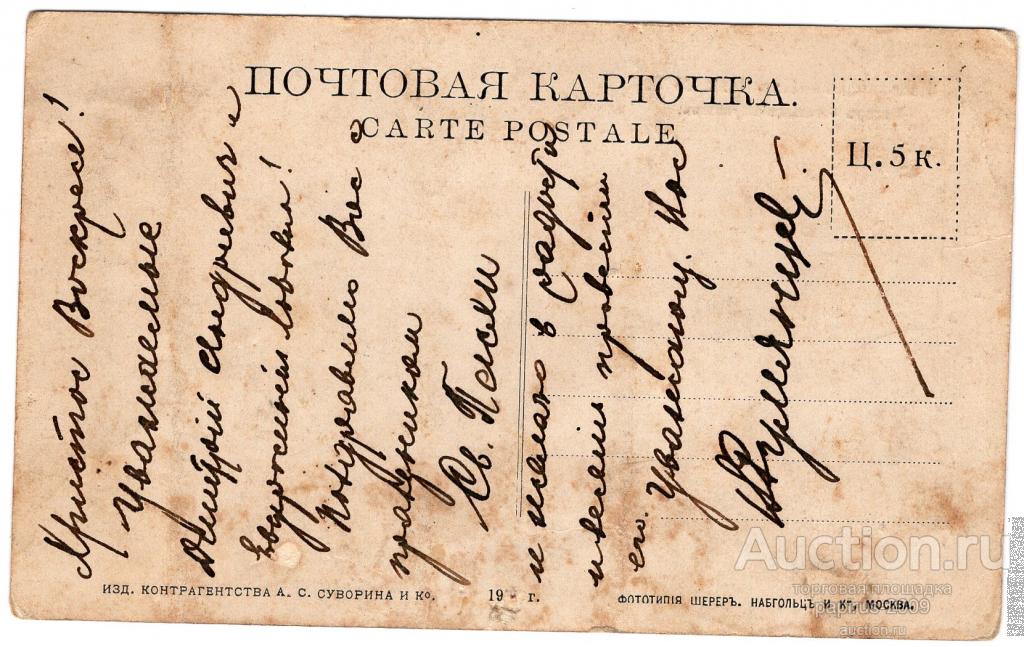 ПОЧТОВАЯ КАРТОЧКА.
CARTE POSTALE
Ц. 5 к.
Христос Воскресе!
Уважаемые
Дмитрій Андреевичъ и
Поздравляю Вас с
праздником
Св. Пасхи
и желаю в радости
провести
его. Уважающ. Вас
ИЗД. КОНТРАГЕНТСТВА А. С. СУВОРИНА И Ко.
19 г.
ФОТОТИПІЯ ШЕРЕРЪ. НАБГОЛЬЦЪ И Ко, МОСКВА.
Auction.ru
торговая площадка
auction.ru